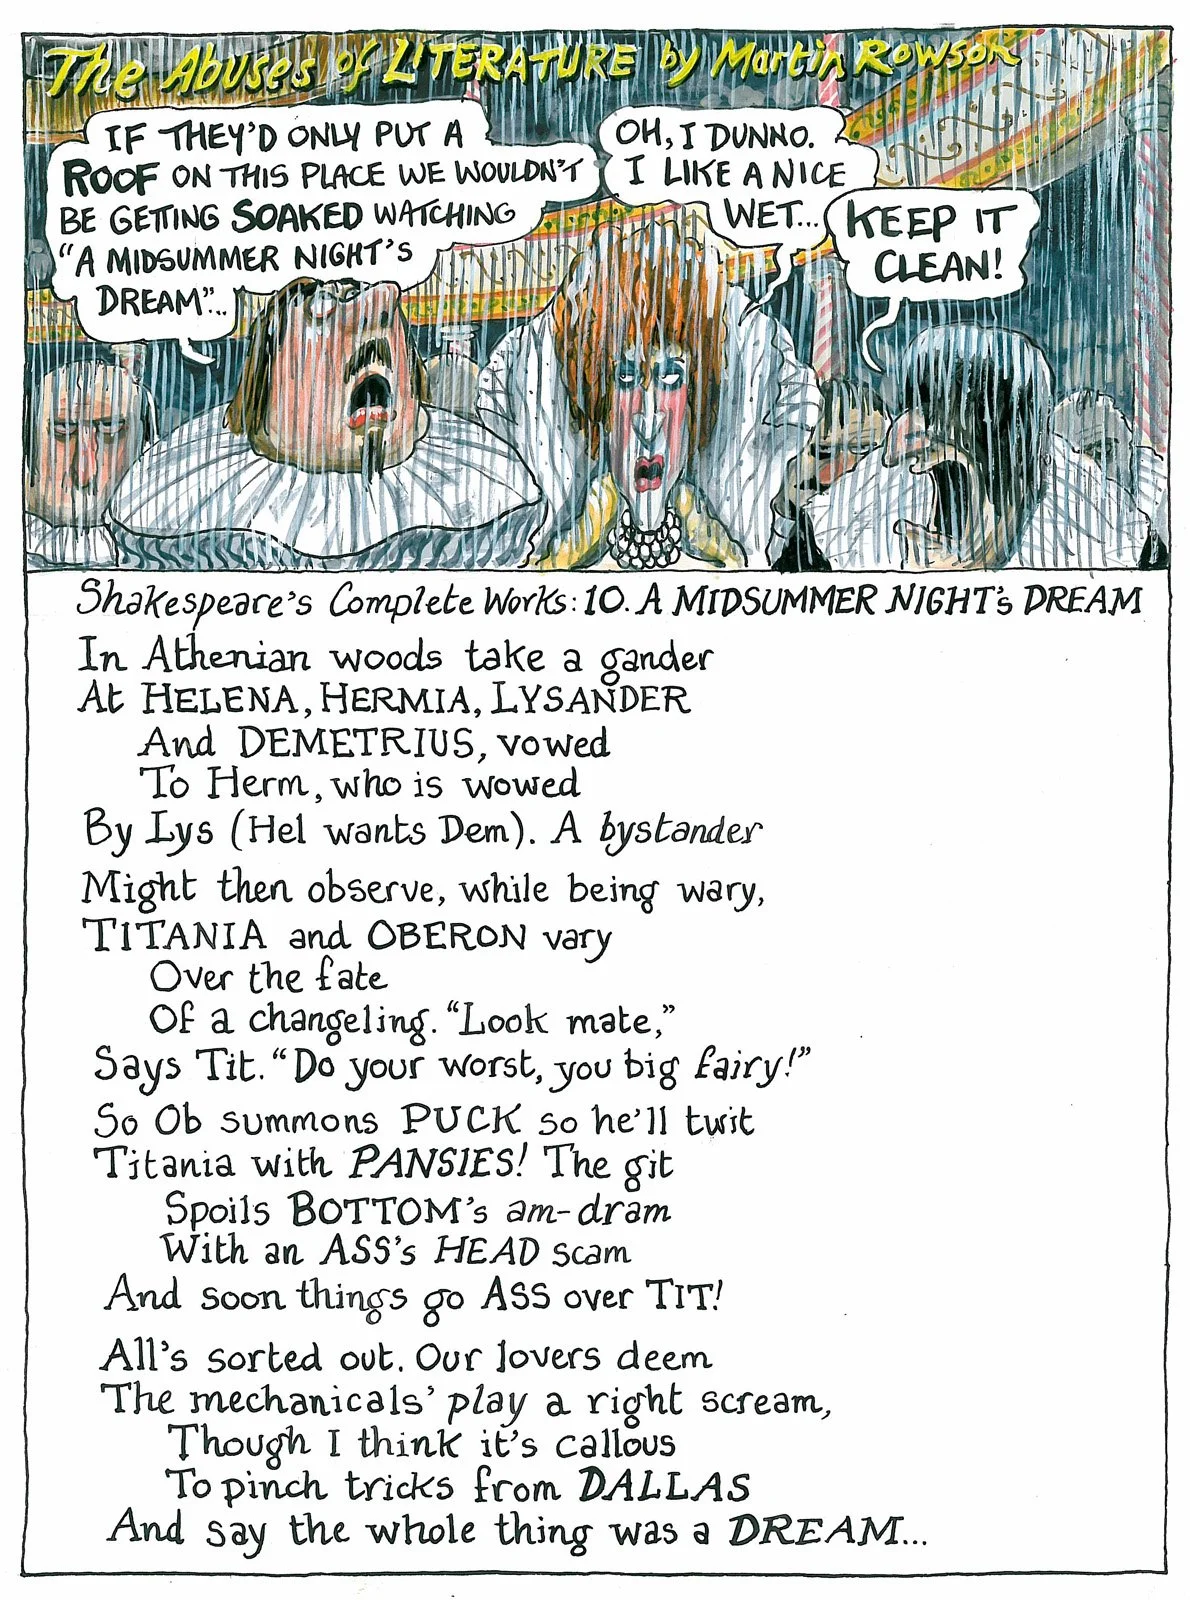 The Abuses of LITERATURE by Martin Rowson
IF THEY'D ONLY PUT A
ROOF ON THIS PLACE WE WOULDN'T
BE GETTING SOAKED WATCHING
"A MIDSUMMER NIGHT'S
DREAM"...
OH, I DUNNO.
I LIKE A NICE
WET...
KEEP IT
CLEAN!
Shakespeare's Complete Works: 10. A MIDSUMMER NIGHT'S DREAM
In Athenian woods take a gander
At HELENA, HERMIA, LYSANDER
And DEMETRIUS, vowed
To Herm, who is wowed
By Lys (Hel wants Dem). A bystander
Might then observe, while being wary,
TITANIA and OBERON vary
Over the fate
Of a changeling. "Look mate,"
Says Tit. "Do your worst, you big fairy!"
So Ob summons PUCK so he'll twit
Titania with PANSIES! The git
Spoils BOTTOM's am-dram
With an ASS's HEAD scam
And soon things go ASS over TIT!
All's sorted out. Our lovers deem
The mechanicals' play a right scream,
Though I think it's callous
To pinch tricks from DALLAS
And say the whole thing was a DREAM...